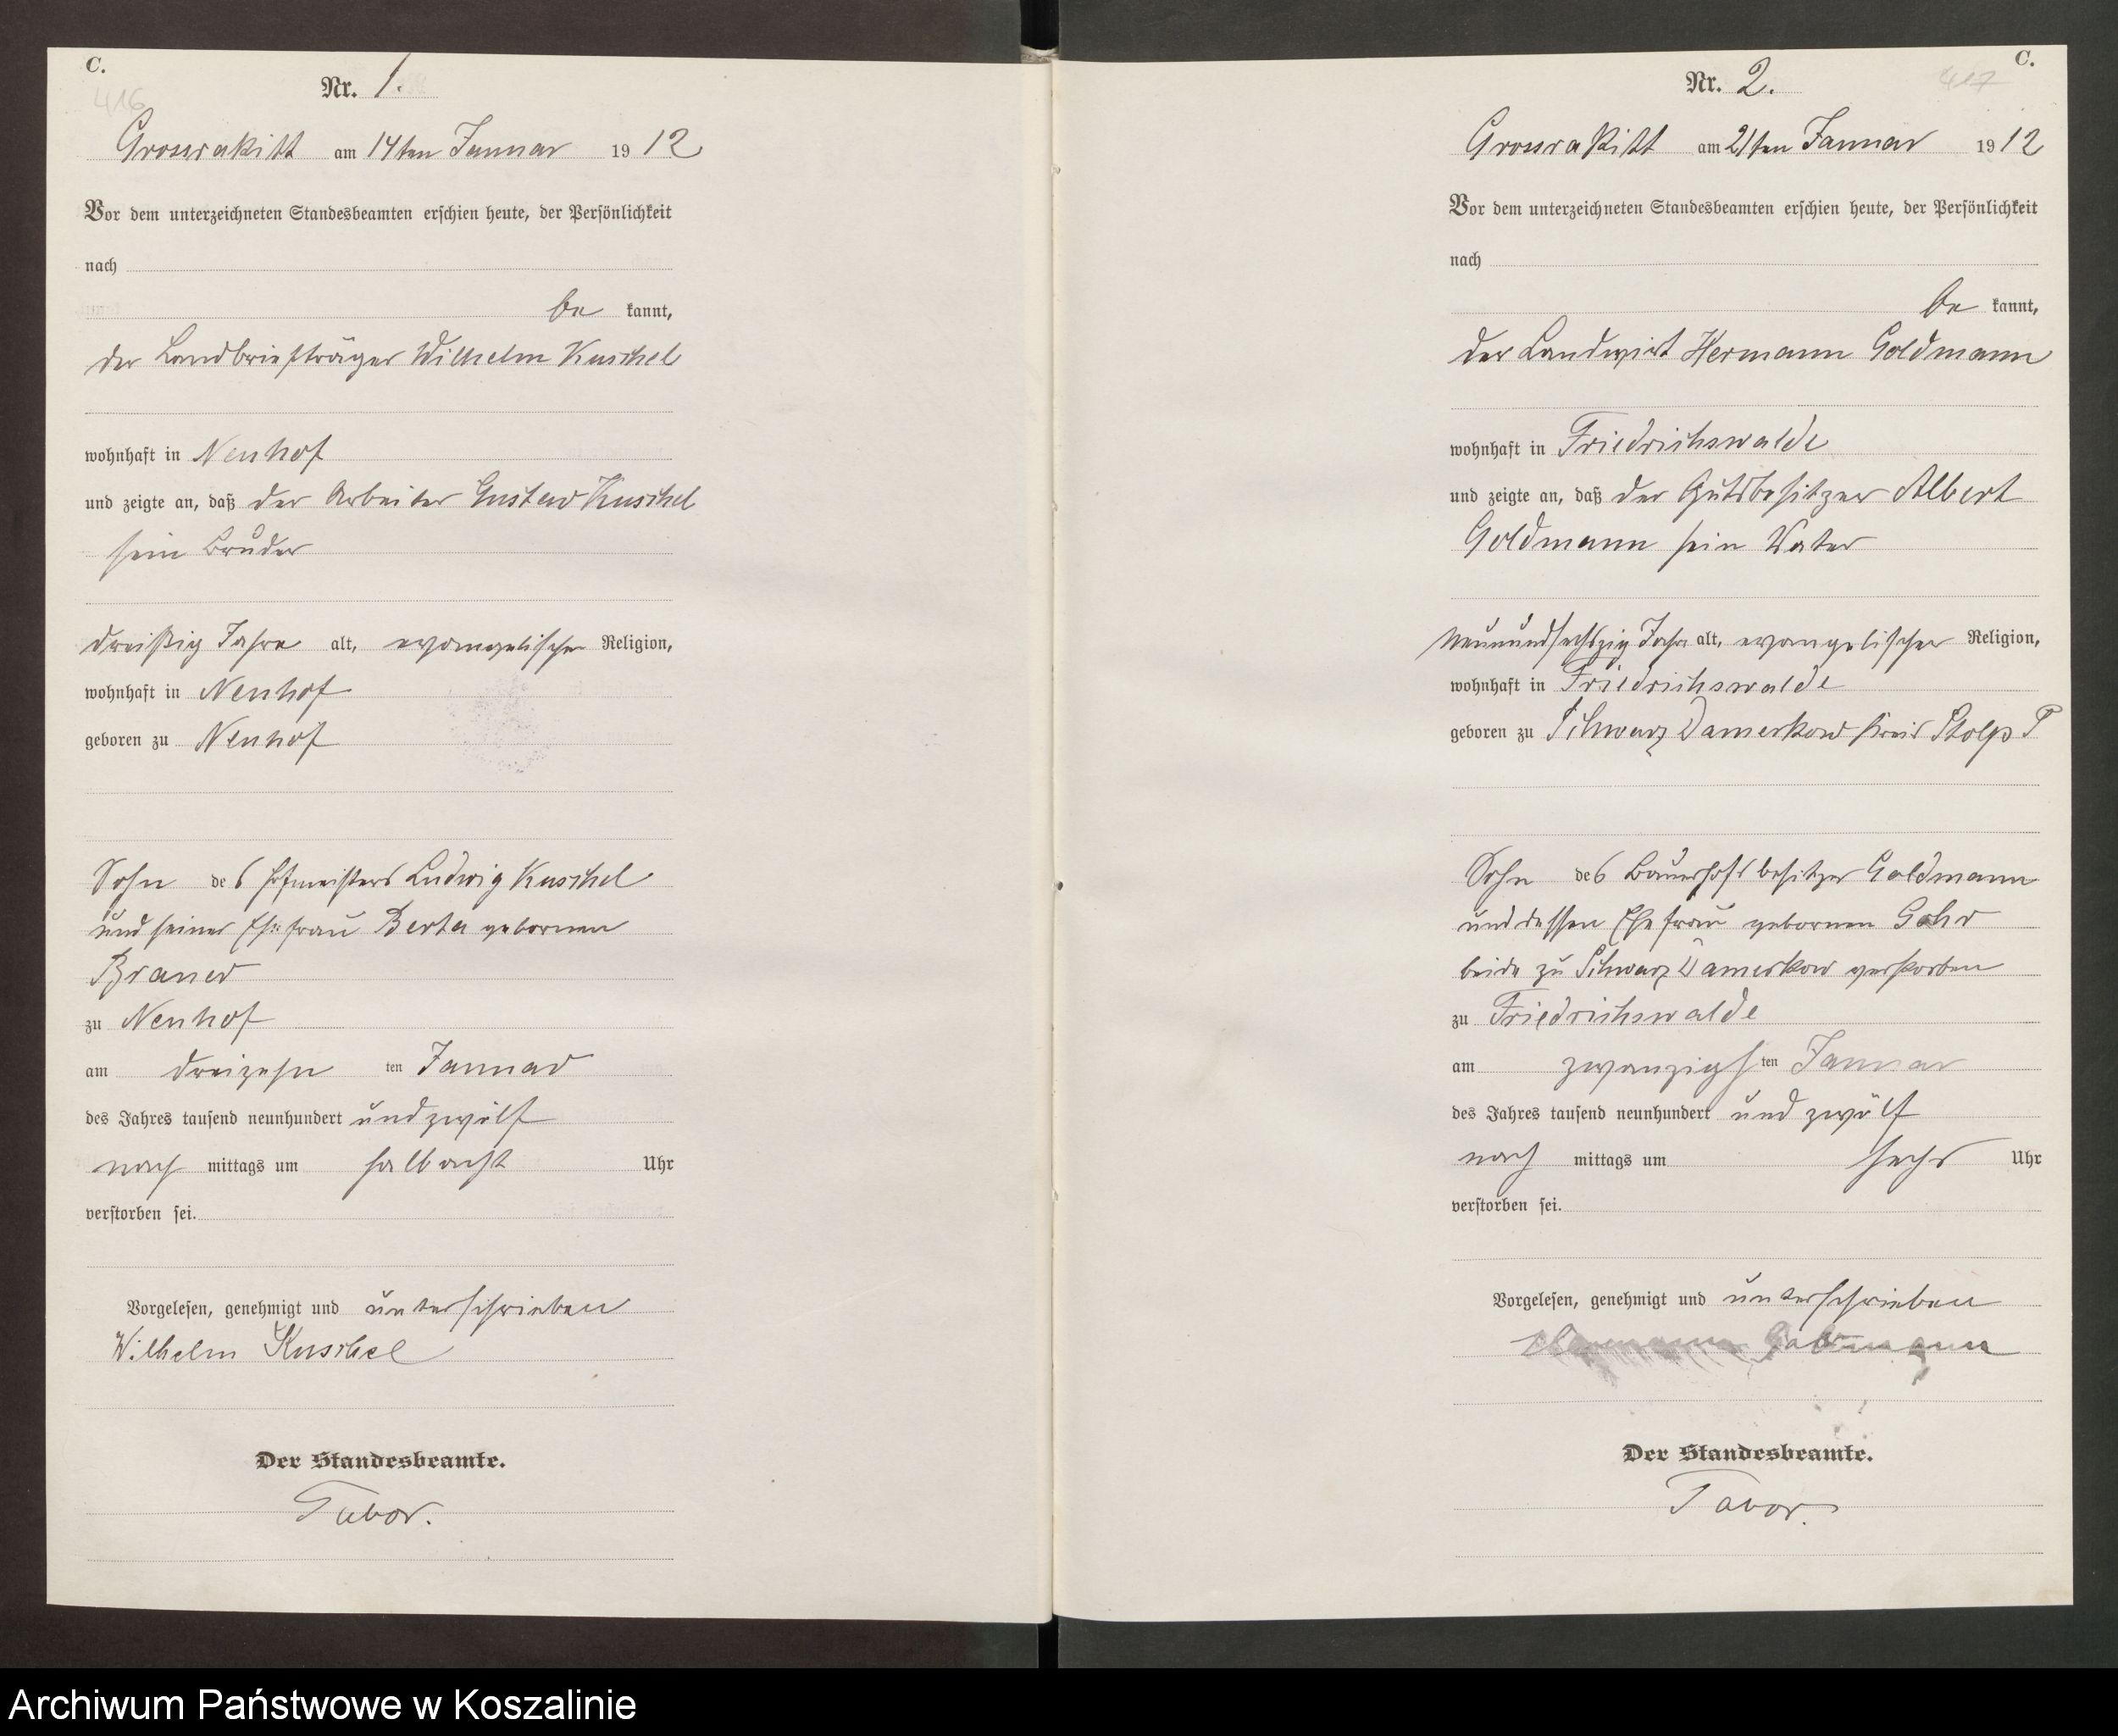 C.
416
Nr. 1.
Grossrakitt am 14ten Januar 1912
Vor dem unterzeichneten Standesbeamten erschien heute, der Persönlichkeit
nach
be kannt,
der Landbriefträger Wilhelm Kuschel
wohnhaft in Neuhof
und zeigte an, daß der Arbeiter Gustav Kuschel
sein Bruder
dreißig Jahre alt, evangelischer Religion,
wohnhaft in Neuhof
geboren zu Neuhof
Sohn des Hofmeisters Ludwig Kuschel
und seiner Ehefrau Berta gebornen
zu Neuhof
am dreizehn ten Januar
des Jahres tausend neunhundert und zwölf
nach mittags um halb acht Uhr
verstorben sei.
Vorgelesen, genehmigt und unterschrieben
Wilhelm Kuschel
Der Standesbeamte.
Tabor.
C.
417
Nr. 2.
Grossrakitt am 21ten Januar 1912
Vor dem unterzeichneten Standesbeamten erschien heute, der Persönlichkeit
nach
be kannt,
der Landwirt Hermann Goldmann
wohnhaft in Friedrichswalde
und zeigte an, daß der Gutsbesitzer Albert
Goldmann sein Vater
neunundsechszig Jahr alt, evangelischer Religion,
wohnhaft in Friedrichswalde
geboren zu Schwarz Damerkow Kreis Stolp P
Sohn des Bauerhofsbesitzer Goldmann
und dessen Ehefrau gebornen Gohr
beide zu Schwarz Damerkow verstorben
zu Friedrichswalde
am zwanzigs ten Januar
des Jahres tausend neunhundert und zwölf
nach mittags um sechs Uhr
verstorben sei.
Vorgelesen, genehmigt und unterschrieben
Hermann Goldmann
Der Standesbeamte.
Tabor.
Archiwum Państwowe w Koszalinie